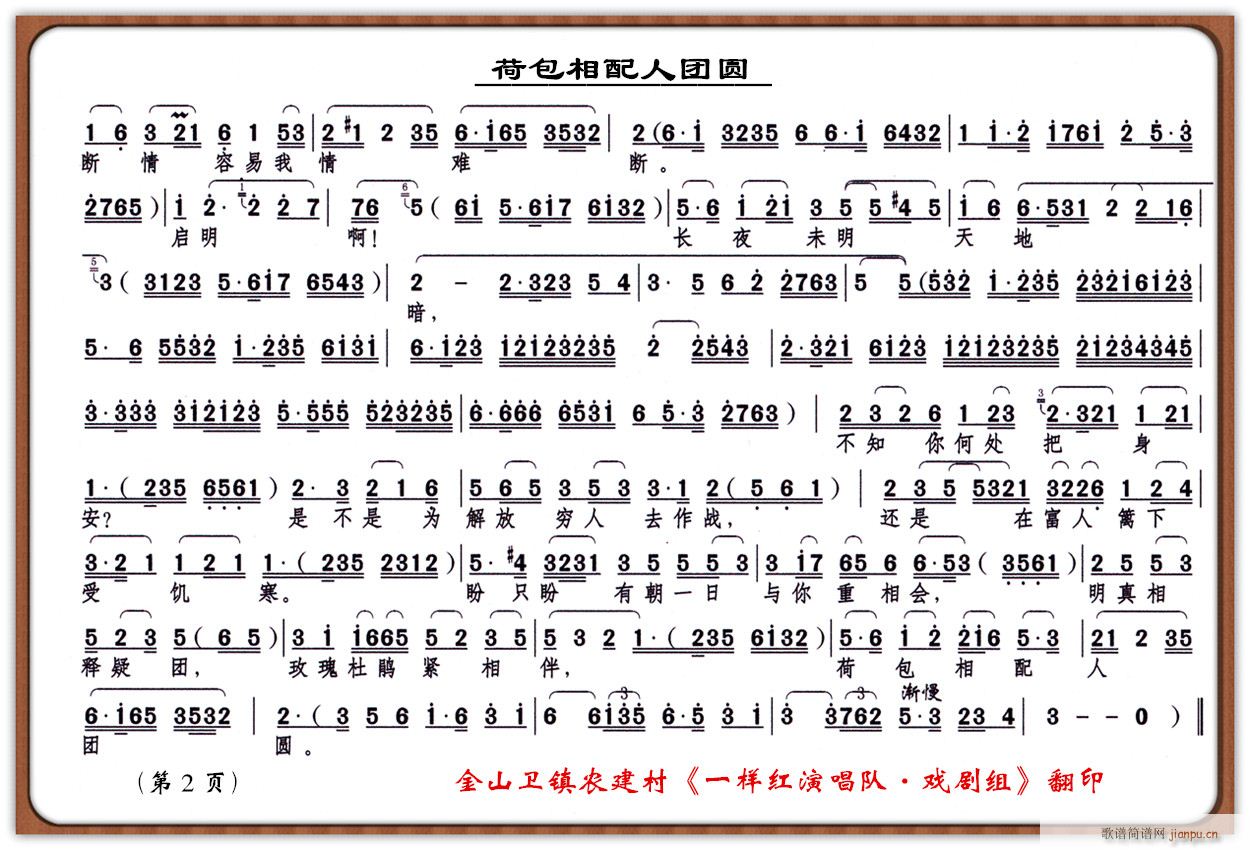 荷包相配人团圆
1 6 3 21 6 1 53 | 2 #1 2 35 6·i65 3532 | 2 (6·i 3235 6 6·i 6432 | 1 i·2 i76i 2 5·3
断情 容易我情 难 断。
2765) | i 2· 2 2 7 | 76 5 ( 6i 5·6i7 6i32) | 5·6 i 2i 3 5 5 #4 5 | i 6 6·531 2 2 16
启明 啊! 长夜未明 天地
3 ( 3123 5·6i7 6543) | 2 - 2·323 5 4 | 3· 5 6 2 2763 | 5 5 (532 i·235 232i6i23
暗,
5· 6 5532 i·235 6i3i | 6·i23 i2i23235 2 2543 | 2·32i 6i23 i2i23235 2i234345
3·333 3i2i23 5·555 523235 | 6·666 653i 6 5·3 2763 ) | 2 3 2 6 1 23 2·321 1 21
不知 你何处 把 身
1·( 235 6561 ) 2· 3 2 1 6 | 5 6 5 3 5 3 3·1 2( 5 6 1 ) | 2 3 5 5321 3226 1 2 4
安? 是不是 为 解放 穷人 去作战, 还是 在富人篱下
3·2 1 1 2 1 1·( 235 2312 ) | 5· #4 3231 3 5 5 5 3 | 3 i7 65 6 6·53 ( 3561 ) | 2 5 5 3
受 饥 寒。 盼只盼 有朝一日 与你重相会, 明真相
5 2 3 5 ( 6 5 ) | 3 i i665 5 2 3 5 | 5 3 2 1·( 235 6i32 ) | 5·6 i 2 2i6 5·3 | 21 2 35
释疑 团, 玫瑰杜鹃紧相 伴, 荷包相配 人
渐慢
6·i65 3532 | 2·( 3 5 6 i·6 3 i | 6 6i35 6·5 3 i | 3 3762 5·3 23 4 | 3 - - 0 ) ‖
团 圆。
(第2页)
金山卫镇农建村《一样红演唱队·戏剧组》翻印
歌谱简谱网 jianpu.cn